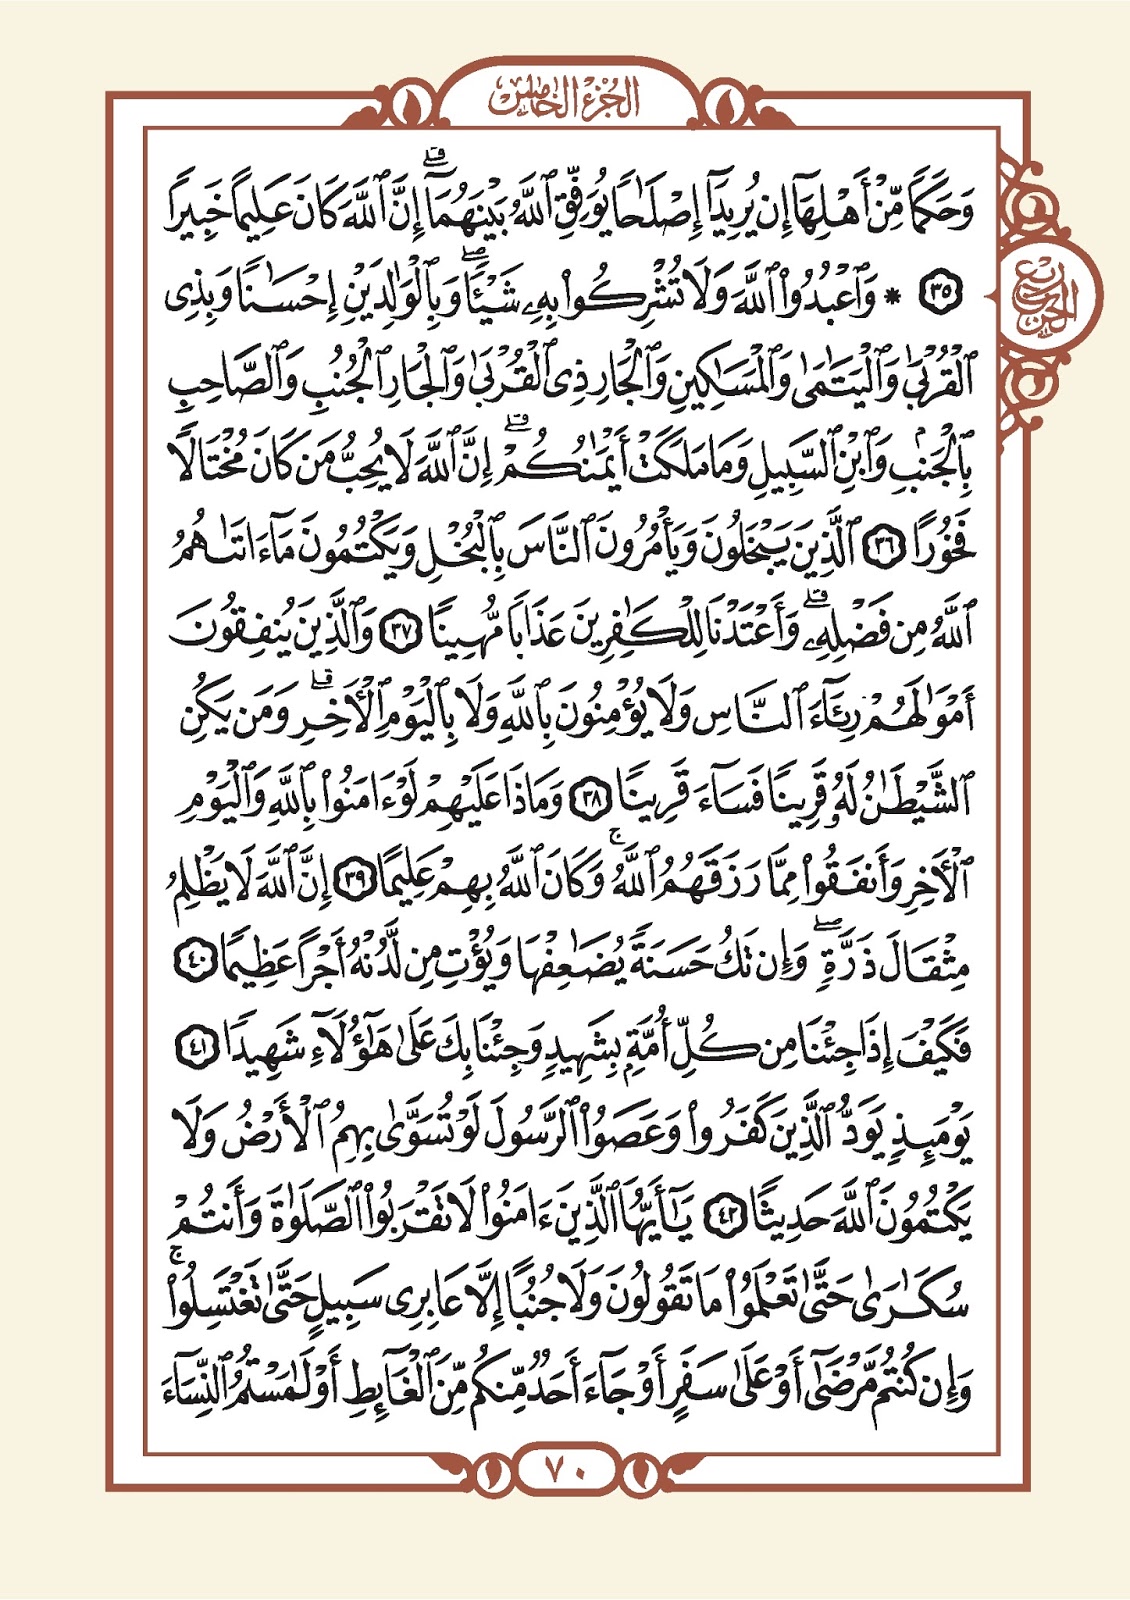 الجزء الخامس
وَحَكَمًا مِّنْ أَهْلِهَآ إِن يُرِيدَآ إِصْلَٰحًا يُوَفِّقِ ٱللَّهُ بَيْنَهُمَآ ۗ إِنَّ ٱللَّهَ كَانَ عَلِيمًا خَبِيرًا
٣٥ * وَٱعْبُدُوا۟ ٱللَّهَ وَلَا تُشْرِكُوا۟ بِهِۦ شَيْـًٔا ۖ وَبِٱلْوَٰلِدَيْنِ إِحْسَٰنًا وَبِذِى
ٱلْقُرْبَىٰ وَٱلْيَتَٰمَىٰ وَٱلْمَسَٰكِينِ وَٱلْجَارِ ذِى ٱلْقُرْبَىٰ وَٱلْجَارِ ٱلْجُنُبِ وَٱلصَّاحِبِ
بِٱلْجَنۢبِ وَٱبْنِ ٱلسَّبِيلِ وَمَا مَلَكَتْ أَيْمَٰنُكُمْ ۗ إِنَّ ٱللَّهَ لَا يُحِبُّ مَن كَانَ مُخْتَالًا
فَخُورًا ٣٦ ٱلَّذِينَ يَبْخَلُونَ وَيَأْمُرُونَ ٱلنَّاسَ بِٱلْبُخْلِ وَيَكْتُمُونَ مَآ ءَاتَىٰهُمُ
ٱللَّهُ مِن فَضْلِهِۦ ۗ وَأَعْتَدْنَا لِلْكَٰفِرِينَ عَذَابًا مُّهِينًا ٣٧ وَٱلَّذِينَ يُنفِقُونَ
أَمْوَٰلَهُمْ رِئَآءَ ٱلنَّاسِ وَلَا يُؤْمِنُونَ بِٱللَّهِ وَلَا بِٱلْيَوْمِ ٱلْءَاخِرِ ۗ وَمَن يَكُنِ
ٱلشَّيْطَٰنُ لَهُۥ قَرِينًا فَسَآءَ قَرِينًا ٣٨ وَمَاذَا عَلَيْهِمْ لَوْ ءَامَنُوا۟ بِٱللَّهِ وَٱلْيَوْمِ
ٱلْءَاخِرِ وَأَنفَقُوا۟ مِمَّا رَزَقَهُمُ ٱللَّهُ ۚ وَكَانَ ٱللَّهُ بِهِمْ عَلِيمًا ٣٩ إِنَّ ٱللَّهَ لَا يَظْلِمُ
مِثْقَالَ ذَرَّةٍ ۖ وَإِن تَكُ حَسَنَةً يُضَٰعِفْهَا وَيُؤْتِ مِن لَّدُنْهُ أَجْرًا عَظِيمًا ٤٠
فَكَيْفَ إِذَا جِئْنَا مِن كُلِّ أُمَّةٍۭ بِشَهِيدٍ وَجِئْنَا بِكَ عَلَىٰ هَٰٓؤُلَآءِ شَهِيدًا ٤١
يَوْمَئِذٍ يَوَدُّ ٱلَّذِينَ كَفَرُوا۟ وَعَصَوُا۟ ٱلرَّسُولَ لَوْ تُسَوَّىٰ بِهِمُ ٱلْأَرْضُ وَلَا
يَكْتُمُونَ ٱللَّهَ حَدِيثًا ٤٢ يَٰٓأَيُّهَا ٱلَّذِينَ ءَامَنُوا۟ لَا تَقْرَبُوا۟ ٱلصَّلَوٰةَ وَأَنتُمْ
سُكَٰرَىٰ حَتَّىٰ تَعْلَمُوا۟ مَا تَقُولُونَ وَلَا جُنُبًا إِلَّا عَابِرِى سَبِيلٍ حَتَّىٰ تَغْتَسِلُوا۟ ۚ
وَإِن كُنتُم مَّرْضَىٰٓ أَوْ عَلَىٰ سَفَرٍ أَوْ جَآءَ أَحَدٌ مِّنكُم مِّنَ ٱلْغَآئِطِ أَوْ لَٰمَسْتُمُ ٱلنِّسَآءَ
٧٠